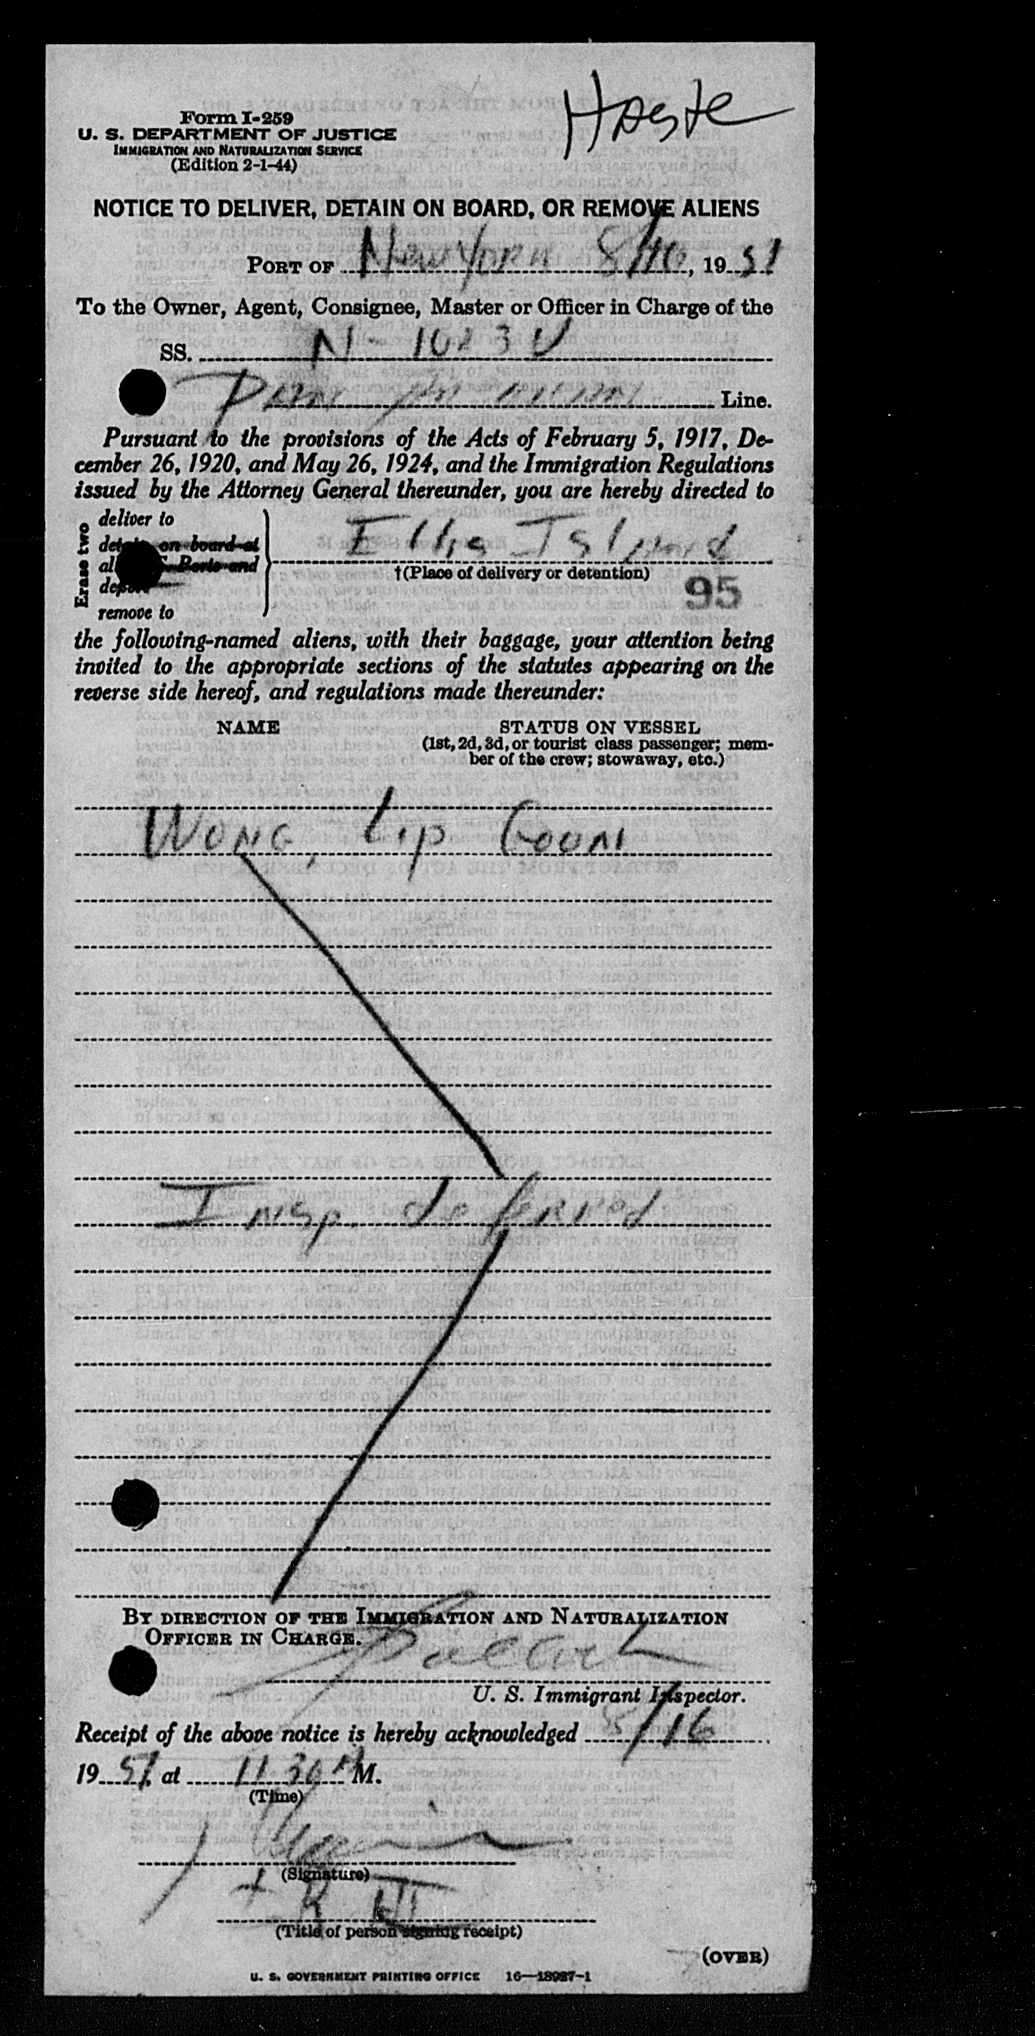 Haste
Form I-259
U. S. DEPARTMENT OF JUSTICE
IMMIGRATION AND NATURALIZATION SERVICE
(Edition 2-1-44)
NOTICE TO DELIVER, DETAIN ON BOARD, OR REMOVE ALIENS
PORT OF New York 8/16, 1951
To the Owner, Agent, Consignee, Master or Officer in Charge of the
SS. N-1023V
Pan American Line.
Pursuant to the provisions of the Acts of February 5, 1917, De-
cember 26, 1920, and May 26, 1924, and the Immigration Regulations
issued by the Attorney General thereunder, you are hereby directed to
Erase two
deliver to
detain on board at
all U.S. Ports and
deport
remove to
Ellis Island
†(Place of delivery or detention)
95
the following-named aliens, with their baggage, your attention being
invited to the appropriate sections of the statutes appearing on the
reverse side hereof, and regulations made thereunder:
NAME STATUS ON VESSEL
(1st, 2d, 3d, or tourist class passenger; mem-
ber of the crew; stowaway, etc.)
WONG, Lip Goon
Insp. deferred
BY DIRECTION OF THE IMMIGRATION AND NATURALIZATION
OFFICER IN CHARGE.
U. S. Immigrant Inspector.
Receipt of the above notice is hereby acknowledged 8/16
1951, at 11 30 A M.
(Time)
(Signature)
(Title of person signing receipt)
(OVER)
U. S. GOVERNMENT PRINTING OFFICE 16—13987-1